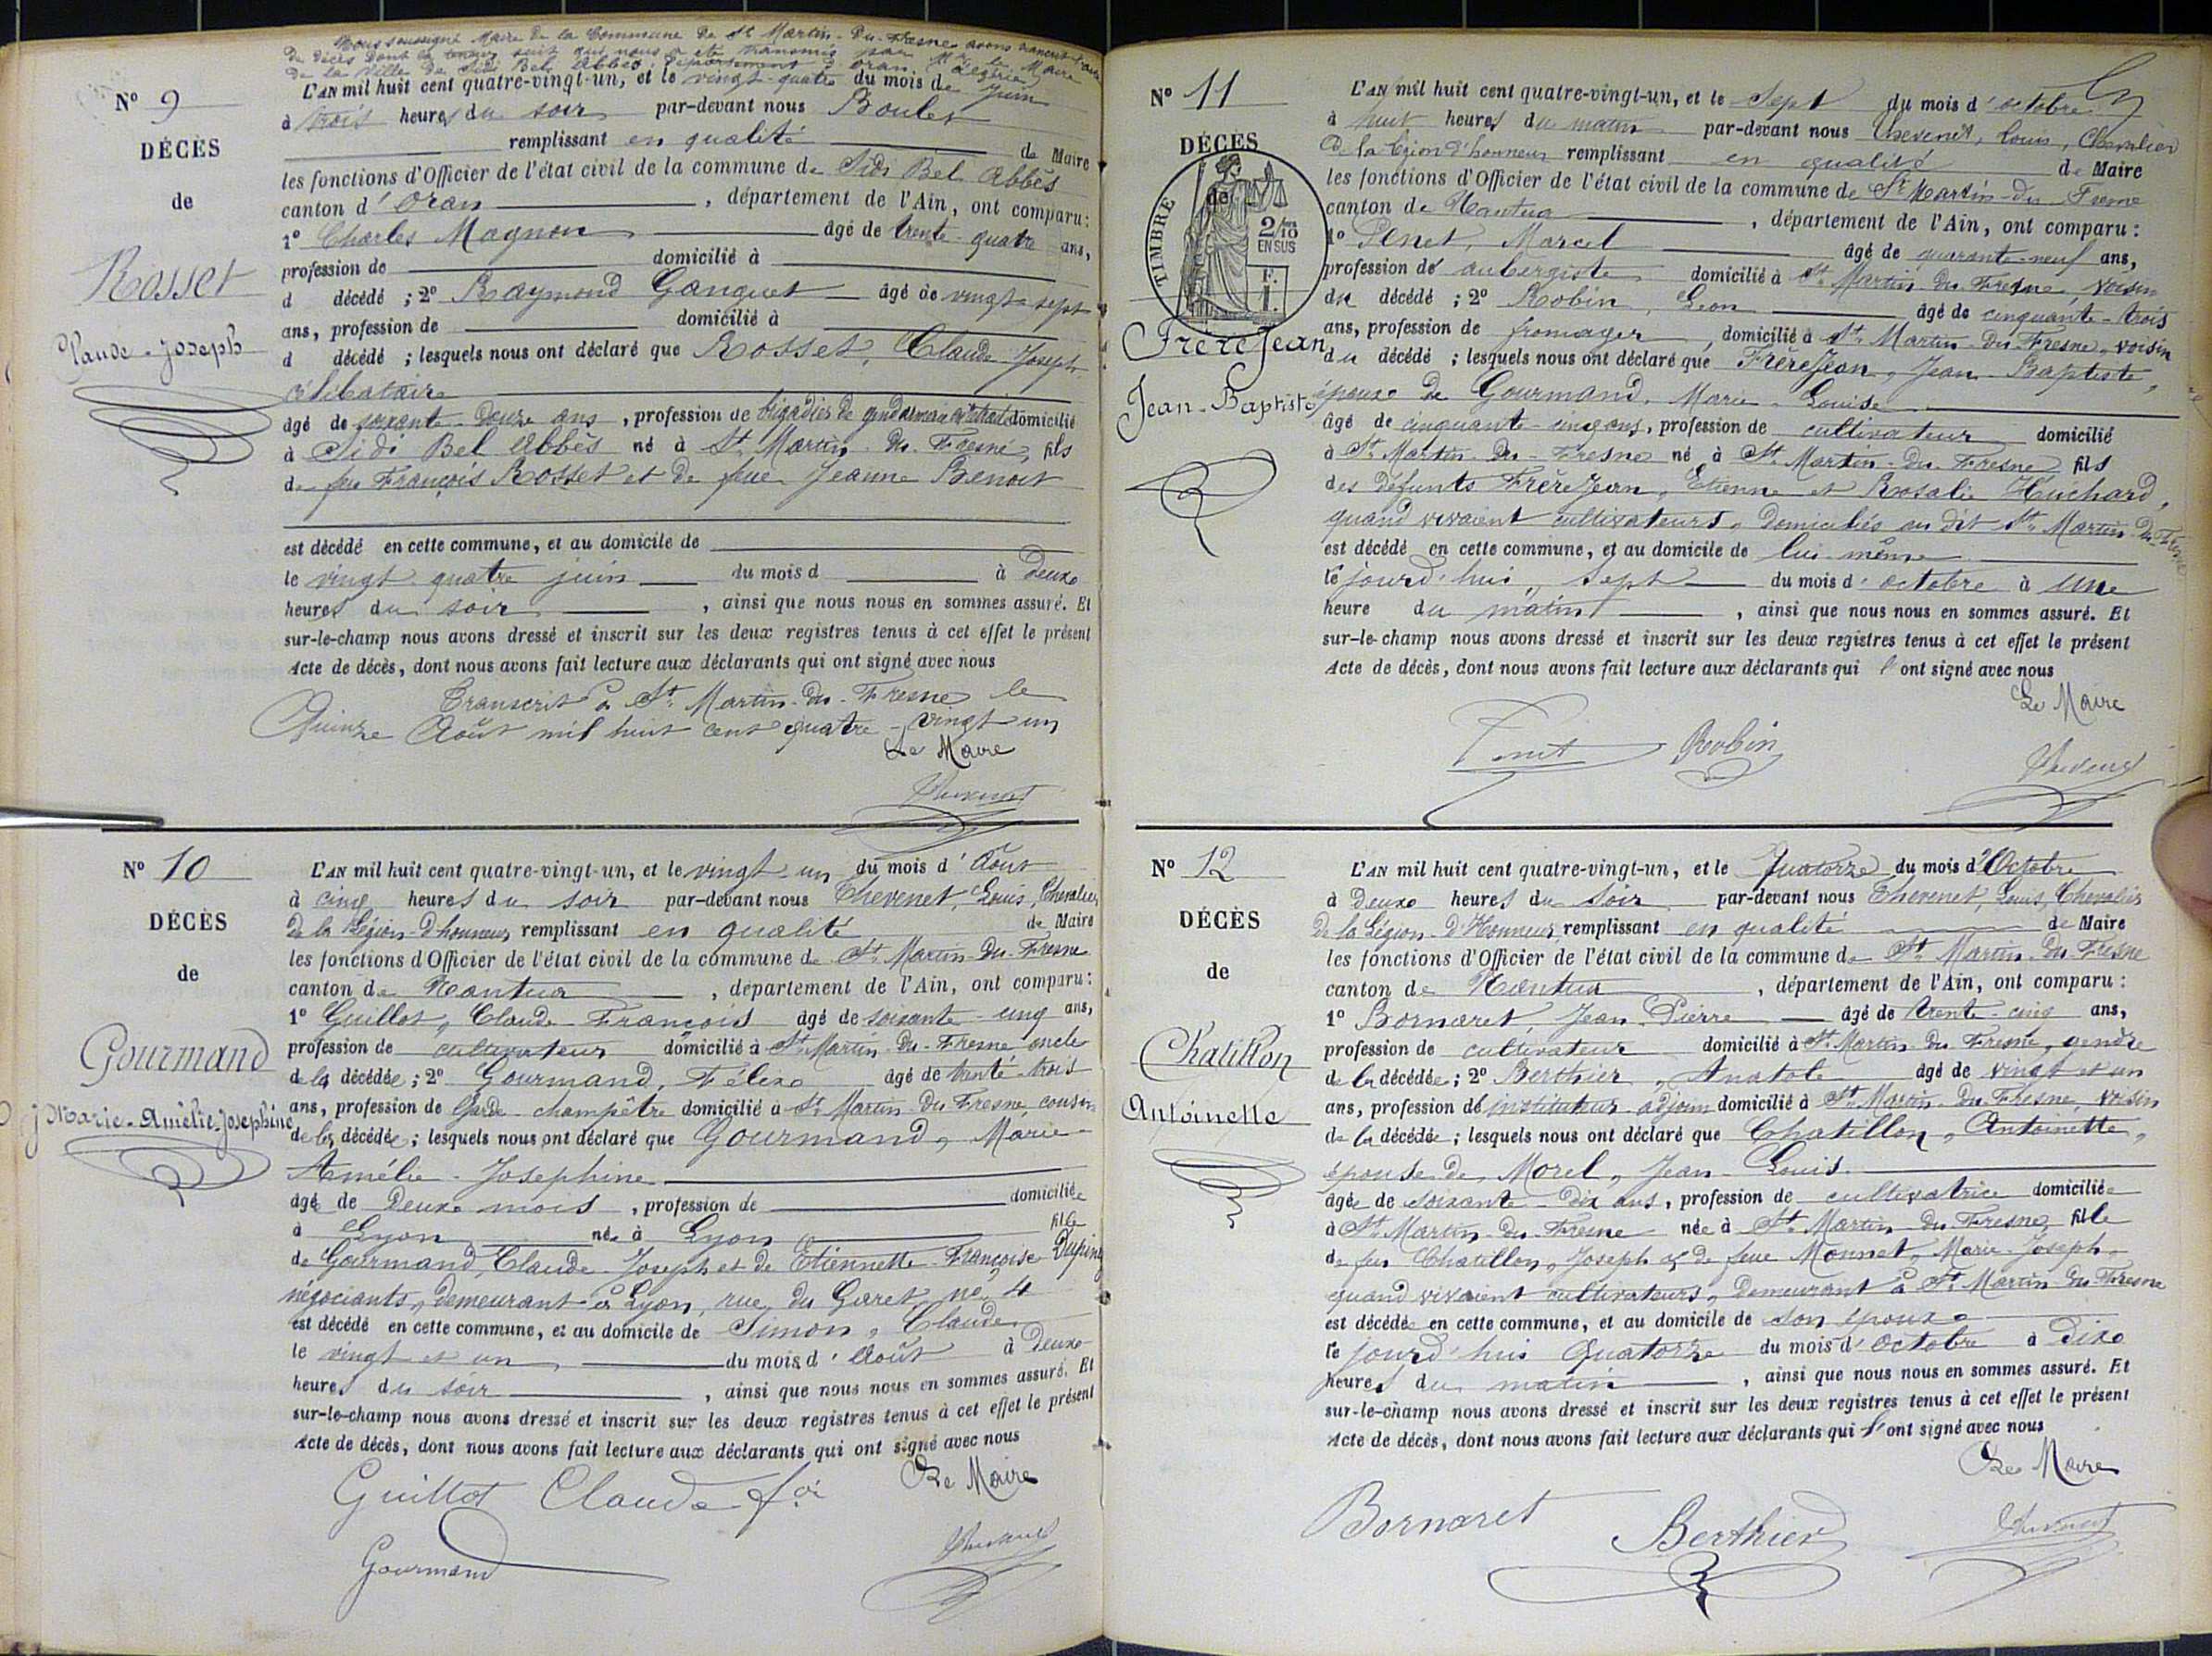 Nous soussigné Maire de la Commune de St Martin-du-Fresne avons transcrit l'acte
de décès dont la teneur suit qui nous a été transmis par Mr le Maire
de la Ville de Sidi Bel Abbès, département d'Oran Algérie
N° 9
DÉCÈS
de
Rosset
Claude-Joseph
L'AN mil huit cent quatre-vingt-un, et le vingt-quatre du mois de juin
à trois heures du soir par-devant nous Boules
remplissant en qualité de Maire
les fonctions d'Officier de l'état civil de la commune de Sidi Bel Abbès
canton d'Oran, département de l'Ain, ont comparu:
1° Charles Magnon âgé de trente-quatre ans,
profession de domicilié à
d décédé ; 2° Raymond Ganquet âgé de vingt-sept
ans, profession de domicilié à
d décédé ; lesquels nous ont déclaré que Rosset, Claude-Joseph
célibataire
âgé de soixante-douze ans, profession de brigadier de gendarmerie en retraite domicilié
à Sidi Bel Abbès né à St Martin-du-Fresne, fils
de feu François Rosset et de feue Jeanne Benoit
est décédé en cette commune, et au domicile de
le vingt quatre juin du mois d à deux
heures du soir, ainsi que nous nous en sommes assuré. Et
sur-le-champ nous avons dressé et inscrit sur les deux registres tenus à cet effet le présent
Acte de décès, dont nous avons fait lecture aux déclarants qui ont signé avec nous
Transcrit à St Martin-du-Fresne le
Quinze Août mil huit cent quatre-vingt un
Le Maire
Thevenet
N° 10
DÉCÈS
de
Gourmand
Marie-Amélie-Josephine
L'AN mil huit cent quatre-vingt-un, et le vingt-un du mois d'Août
à cinq heures du soir par-devant nous Thevenet, Louis, Chevalier
de la Légion-d'honneur remplissant en qualité de Maire
les fonctions d'Officier de l'état civil de la commune de St Martin-du-Fresne
canton de Nantua, département de l'Ain, ont comparu:
1° Guillot, Claude-François âgé de soixante-cinq ans,
profession de cultivateur domicilié à St Martin-du-Fresne oncle
de la décédée ; 2° Gourmand, Félix âgé de trente-trois
ans, profession de Garde-champêtre domicilié à St Martin-du-Fresne, cousin
de la décédée ; lesquels nous ont déclaré que Gourmand, Marie-
Amélie-Josephine
âgé de Deux mois, profession de domiciliée
à Lyon née à Lyon fille
de Gourmand, Claude-Joseph et de Etiennette-Françoise Dupin
négociants, demeurant à Lyon, rue du Garet, no 4
est décédé en cette commune, et au domicile de Simon, Claude
le vingt et un du mois d'Août à Deux
heures du soir, ainsi que nous nous en sommes assuré. Et
sur-le-champ nous avons dressé et inscrit sur les deux registres tenus à cet effet le présent
Acte de décès, dont nous avons fait lecture aux déclarants qui ont signé avec nous
Le Maire
Guillot Claude foi
Gourmand
Thevenet
N° 11
DÉCÈS
de
TIMBRE
2/10
EN SUS
FrèreJean
Jean-Baptiste
L'AN mil huit cent quatre-vingt-un, et le Sept du mois d'octobre
à huit heures du matin par-devant nous Thevenet, Louis, Chevalier
de la Légion d'honneur remplissant en qualité de Maire
les fonctions d'Officier de l'état civil de la commune de St Martin-du-Fresne
canton de Nantua, département de l'Ain, ont comparu:
1° Penet, Marcel âgé de quarante-neuf ans,
profession de aubergiste domicilié à St Martin-du-Fresne, voisin
du décédé ; 2° Robin, Léon âgé de cinquante-trois
ans, profession de fromager, domicilié à St Martin-du-Fresne, voisin
du décédé ; lesquels nous ont déclaré que FrèreJean, Jean-Baptiste,
époux de Gourmand, Marie-Louise
âgé de cinquante-cinq ans, profession de cultivateur domicilié
à St Martin-du-Fresne né à St Martin-du-Fresne fils
des défunts FrèreJean, Etienne et Rosalie Huchard,
quand vivaient cultivateurs, domiciliés au dit St Martin-du-Fresne
est décédé en cette commune, et au domicile de lui-même
le jourd'hui, Sept du mois d'octobre à une
heure du matin, ainsi que nous nous en sommes assuré. Et
sur-le-champ nous avons dressé et inscrit sur les deux registres tenus à cet effet le présent
Acte de décès, dont nous avons fait lecture aux déclarants qui l'ont signé avec nous
Le Maire
Penet Robin
Thevenet
N° 12
DÉCÈS
de
Chatillon
Antoinette
L'AN mil huit cent quatre-vingt-un, et le Quatorze du mois d'Octobre
à deux heures du soir par-devant nous Thevenet, Louis, Chevalier
de la Légion-d'Honneur remplissant en qualité de Maire
les fonctions d'Officier de l'état civil de la commune de St Martin-du-Fresne
canton de Nantua, département de l'Ain, ont comparu:
1° Bornaret, Jean-Pierre âgé de trente-cinq ans,
profession de cultivateur domicilié à St Martin-du-Fresne, gendre
de la décédée ; 2° Berthier, Anatole âgé de vingt et un
ans, profession de instituteur-adjoint domicilié à St Martin-du-Fresne, voisin
de la décédée ; lesquels nous ont déclaré que Chatillon, Antoinette,
épouse de Morel, Jean-Louis
âgée de soixante-dix ans, profession de cultivatrice domiciliée
à St Martin-du-Fresne née à St Martin-du-Fresne, fille
de feu Chatillon, Joseph & de feue Monnet, Marie-Joseph,
quand vivaient cultivateurs, demeurant à St Martin-du-Fresne
est décédée en cette commune, et au domicile de son époux
le jourd'hui Quatorze du mois d'octobre à Dix
heures du matin, ainsi que nous nous en sommes assuré. Et
sur-le-champ nous avons dressé et inscrit sur les deux registres tenus à cet effet le présent
Acte de décès, dont nous avons fait lecture aux déclarants qui l'ont signé avec nous
Le Maire
Bornaret Berthier
Thevenet